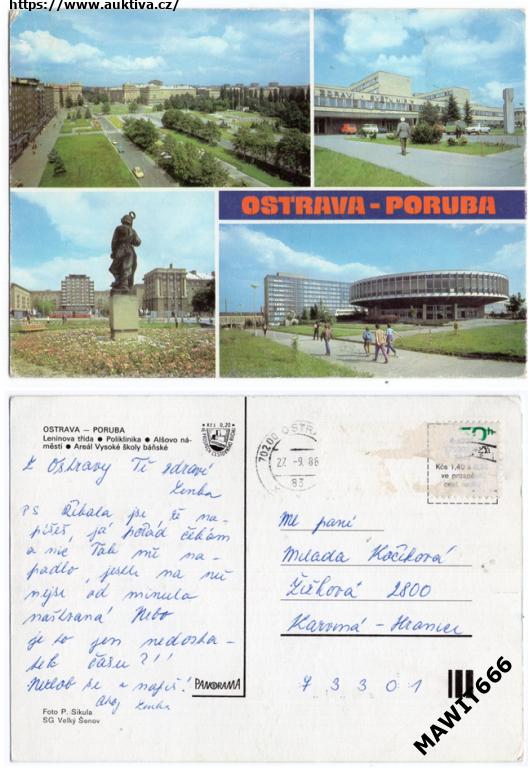 https://www.auktiva.cz/
OSTRAVA - PORUBA
OSTRAVA – PORUBA
Leninova třída ● Poliklinika ● Alšovo ná-
městí ● Areál Vysoké školy báňské
Kčs 0,20
Z Ostravy Tě zdraví
Lenka
PS Říkala jsi, že na-
píšeš, já pořád čekám
a nic, Tak mě na-
padlo, jestli na mě
nejsi od minula
naštvaná! Nebo
je to jen nedosta-
tek času?!!
Nezlob se a napiš!
Ahoj Lenka
PANORAMA
Foto P. Sikula
SG Velký Šenov
70200 OSTRA
27. -9. 88
83
Kčs 1,40
ve prospěch
Ml paní
Milada Kočíková
Žižková 2800
Karviná - Hranice
7 3 3 0 1
MAWIT666